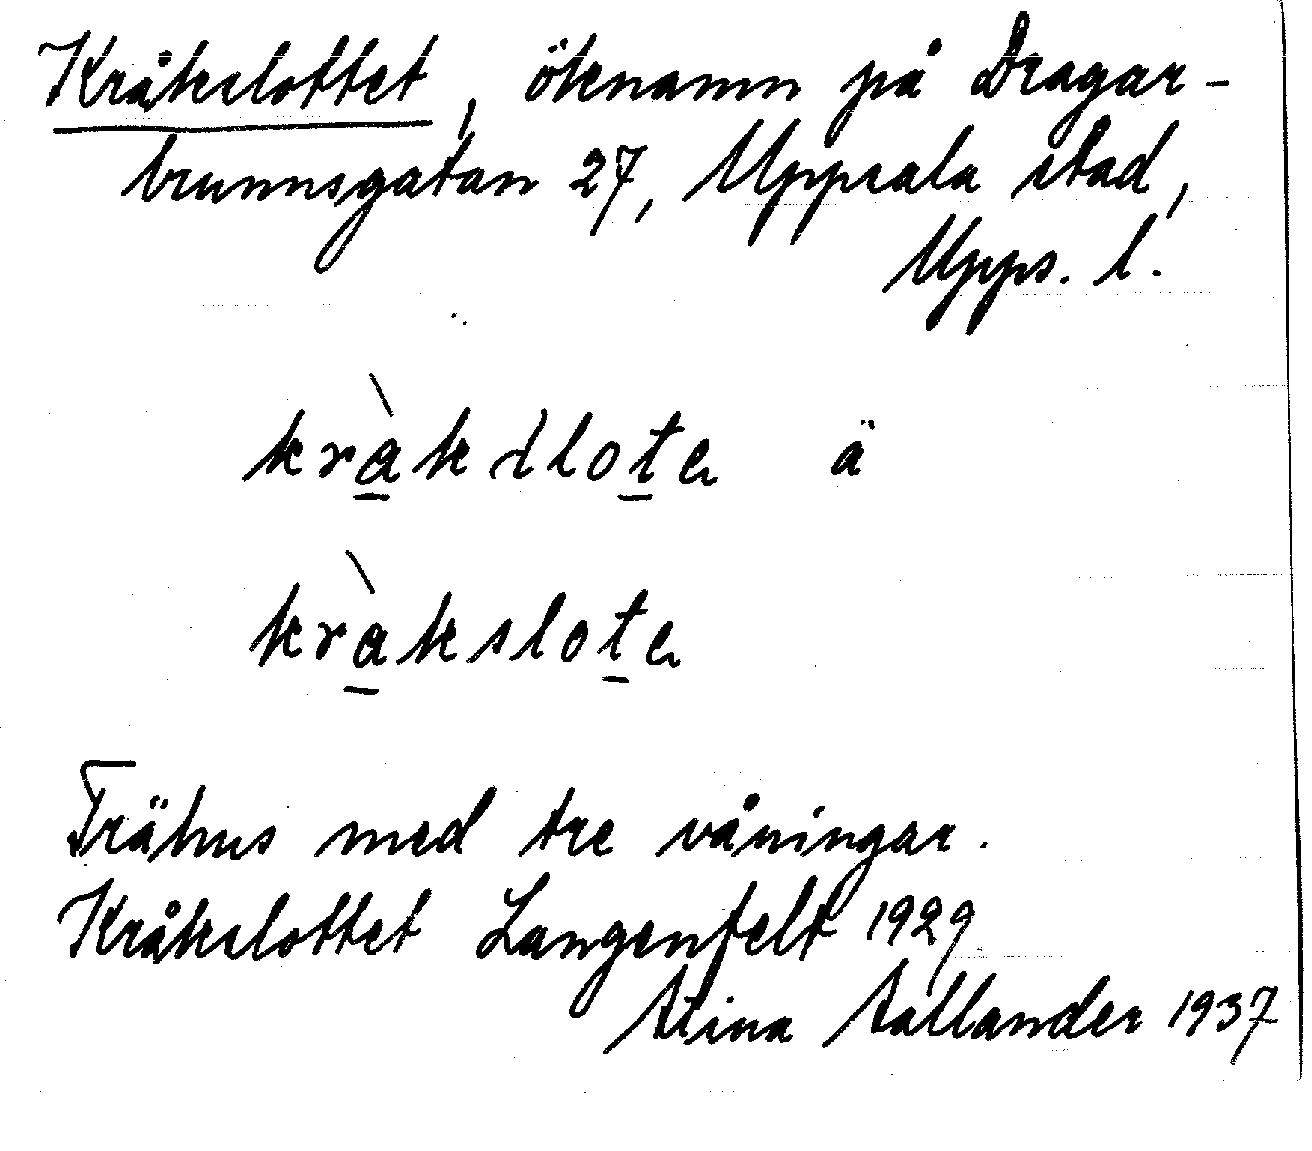 Kråkslottet, öknamn på Dragar-
brunnsgatan 27, Uppsala stad,
Upps. l.
kràkslote ä
kràkslote
Trähus med tre våningar.
Kråkslottet Langenfelt 1929
Stina 1937